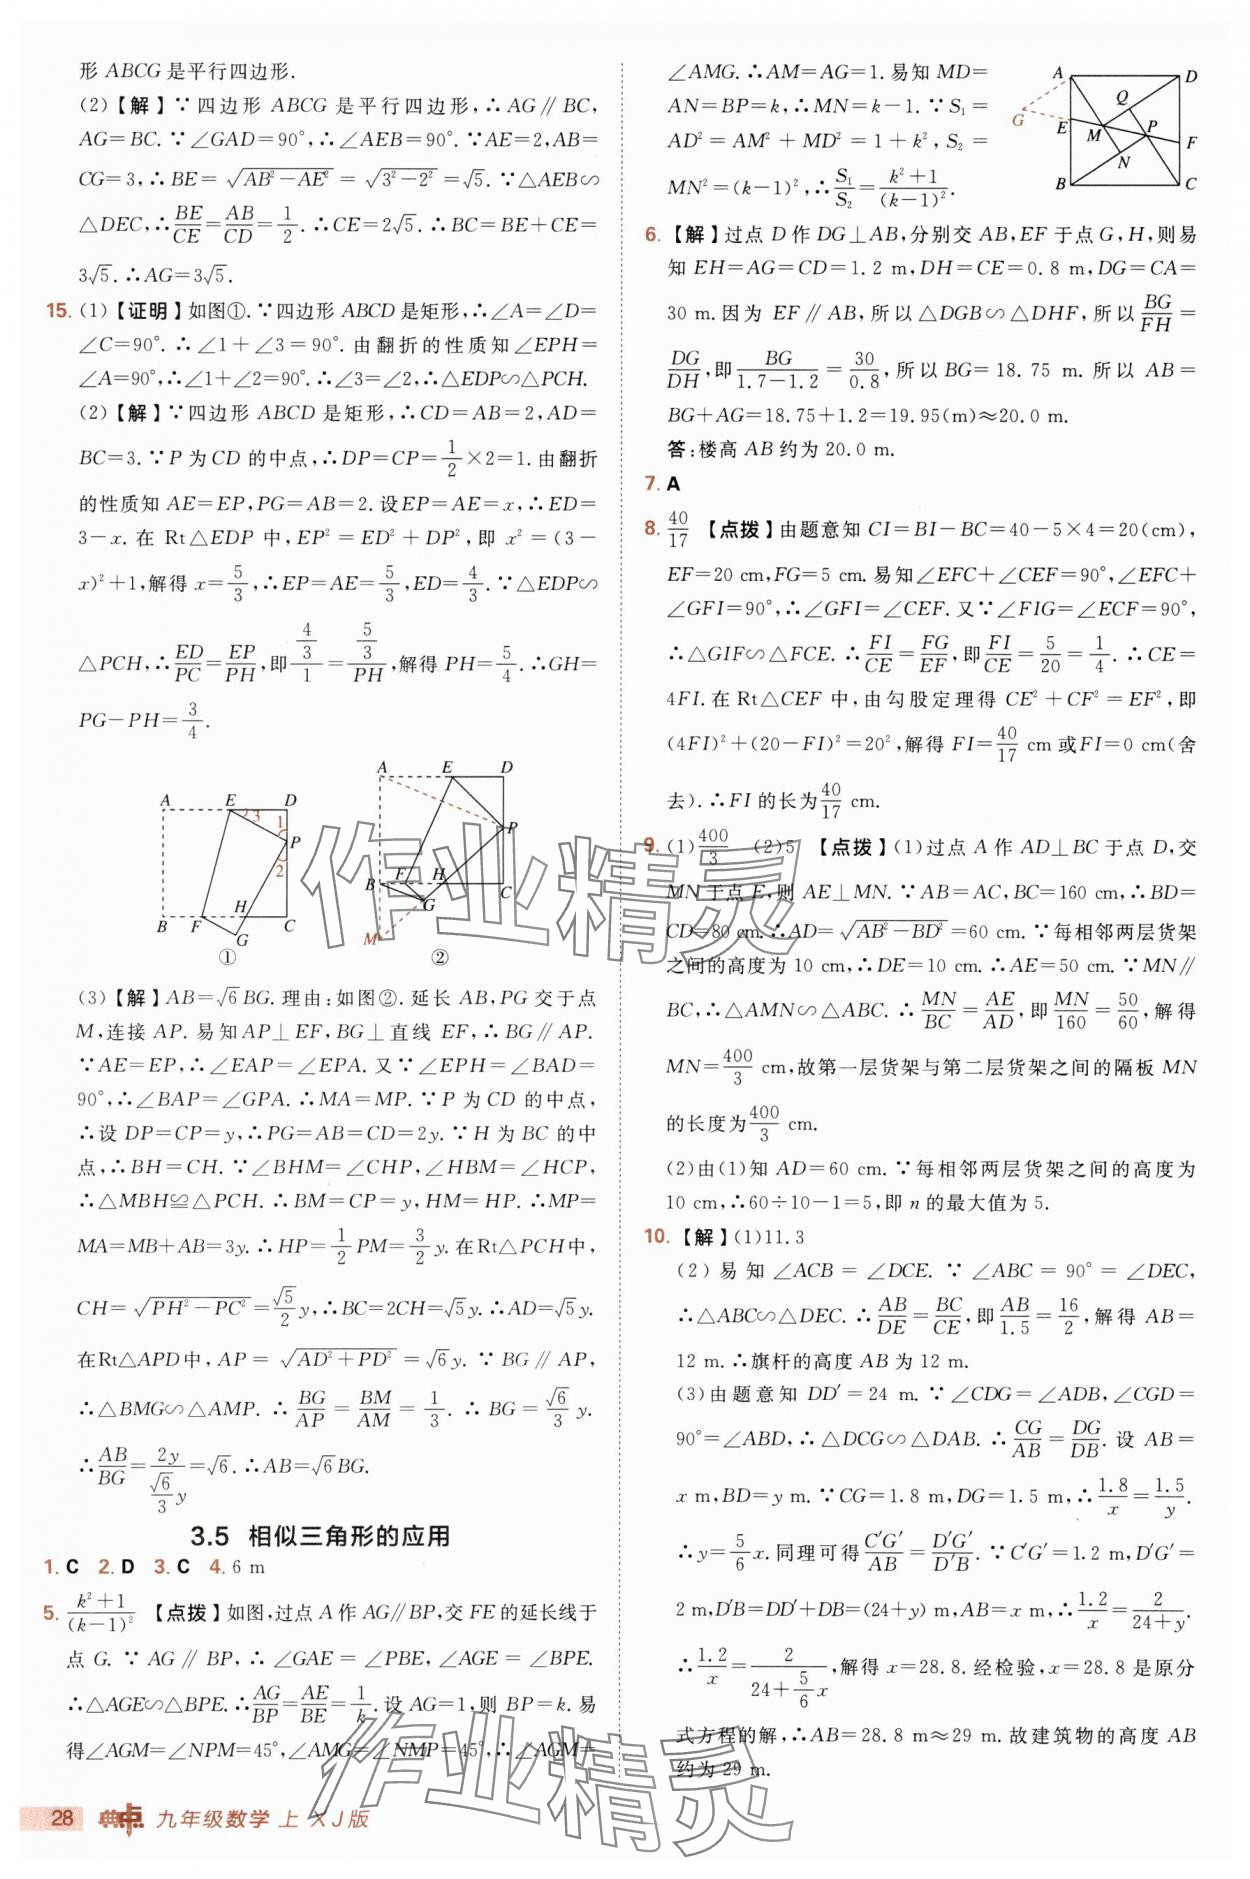 形 ABCG 是平行四边形.
(2)【解】∵四边形 ABCG 是平行四边形,∴AG∥BC,
AG=BC.∵∠GAD=90°,∴∠AEB=90°.∵AE=2,AB=
CG=3,∴BE=√(AB²-AE²)=√(3²-2²)=√5.∵△AEB∽
△DEC,∴BE/CE=AB/CD=1/2.∴CE=2√5.∴BC=BE+CE=
3√5.∴AG=3√5.
15.(1)【证明】如图①.∵四边形 ABCD 是矩形,∴∠A=∠D=
∠C=90°.∴∠1+∠3=90°.由翻折的性质知∠EPH=
∠A=90°,∴∠1+∠2=90°.∴∠3=∠2,∴△EDP∽△PCH.
(2)【解】∵四边形 ABCD 是矩形,∴CD=AB=2,AD=
BC=3.∵P 为 CD 的中点,∴DP=CP=1/2×2=1.由翻折
的性质知 AE=EP,PG=AB=2.设EP=AE=x,∴ED=
3-x.在 Rt△EDP 中,EP²=ED²+DP²,即 x²=(3-
x)²+1,解得 x=5/3,∴EP=AE=5/3,ED=4/3.∵△EDP∽
△PCH,∴ED/PC=EP/PH,即(4/3)/1=(5/3)/PH,解得 PH=5/4.∴GH=
PG-PH=3/4.
A E D 3 1 P 2 B F H C G ①
A E D P B F H C G M ②
(3)【解】AB=√6BG.理由:如图②.延长 AB,PG 交于点
M,连接 AP.易知AP⊥EF,BG⊥直线 EF,∴BG∥AP.
∵AE=EP,∴∠EAP=∠EPA.又∵∠EPH=∠BAD=
90°,∴∠BAP=∠GPA.∴MA=MP.∵P 为 CD 的中点,
∴设 DP=CP=y,∴PG=AB=CD=2y.∵H 为 BC 的中
点,∴BH=CH.∵∠BHM=∠CHP,∠HBM=∠HCP,
∴△MBH≌△PCH.∴BM=CP=y,HM=HP.∴MP=
MA=MB+AB=3y.∴HP=1/2PM=3/2y.在Rt△PCH中,
CH=√(PH²-PC²)=√5/2y,∴BC=2CH=√5y.∴AD=√5y.
在Rt△APD中,AP=√(AD²+PD²)=√6y.∵BG∥AP,
∴△BMG∽△AMP.∴BG/AP=BM/AM=1/3.∴BG=√6/3y.
∴AB/BG=2y/(√6/3y)=√6.∴AB=√6BG.
3.5 相似三角形的应用
1.C 2.D 3.C 4.6 m
5.(k²+1)/(k-1)² 【点拨】如图,过点 A 作 AG∥BP,交 FE 的延长线于
点 G.∵AG∥BP,∴∠GAE=∠PBE,∠AGE=∠BPE.
∴△AGE∽△BPE.∴AG/BP=AE/BE=1/k.设 AG=1,则 BP=k.易
得∠AGM=∠NPM=45°,∠AMG=∠NMP=45°,∴∠AGM=
28 典中点 九年级数学 上 XJ版
∠AMG.∴AM=AG=1.易知 MD=
AN=BP=k,∴MN=k-1.∵S₁=
AD²=AM²+MD²=1+k²,S₂=
MN²=(k-1)²,∴S₁/S₂=(k²+1)/(k-1)².
A D Q G E M P F N B C
6.【解】过点 D 作 DG⊥AB,分别交 AB,EF 于点 G,H,则易
知 EH=AG=CD=1.2 m,DH=CE=0.8 m,DG=CA=
30 m.因为 EF∥AB,所以△DGB∽△DHF,所以BG/FH=
DG/DH,即BG/(1.7-1.2)=30/0.8,所以 BG=18.75 m.所以 AB=
BG+AG=18.75+1.2=19.95(m)≈20.0 m.
答:楼高 AB 约为 20.0 m.
7.A
8.40/17 【点拨】由题意知 CI=BI-BC=40-5×4=20(cm),
EF=20 cm,FG=5 cm.易知∠EFC+∠CEF=90°,∠EFC+
∠GFI=90°,∴∠GFI=∠CEF.又∵∠FIG=∠ECF=90°,
∴△GIF∽△FCE.∴FI/CE=FG/EF,即FI/CE=5/20=1/4.∴CE=
4FI.在 Rt△CEF 中,由勾股定理得 CE²+CF²=EF²,即
(4FI)²+(20-FI)²=20²,解得 FI=40/17 cm 或FI=0 cm(舍
去).∴FI 的长为40/17 cm.
9.(1)400/3 (2)5 【点拨】(1)过点 A 作 AD⊥BC 于点 D,交
MN 于点 E,则 AE⊥MN.∵AB=AC,BC=160 cm,∴BD=
CD=80 cm.∴AD=√(AB²-BD²)=60 cm.∵每相邻两层货架
之间的高度为 10 cm,∴DE=10 cm.∴AE=50 cm.∵MN∥
BC,∴△AMN∽△ABC.∴MN/BC=AE/AD,即MN/160=50/60,解得
MN=400/3 cm,故第一层货架与第二层货架之间的隔板 MN
的长度为400/3 cm.
(2)由(1)知 AD=60 cm.∵每相邻两层货架之间的高度为
10 cm,∴60÷10-1=5,即 n 的最大值为 5.
10.【解】(1)11.3
(2)易知∠ACB=∠DCE.∵∠ABC=90°=∠DEC,
∴△ABC∽△DEC.∴AB/DE=BC/CE,即AB/1.5=16/2,解得 AB=
12 m.∴旗杆的高度 AB 为 12 m.
(3)由题意知 DD′=24 m.∵∠CDG=∠ADB,∠CGD=
90°=∠ABD,∴△DCG∽△DAB.∴CG/AB=DG/DB.设 AB=
x m,BD=y m.∵CG=1.8 m,DG=1.5 m,∴1.8/x=1.5/y.
∴y=5/6x.同理可得C′G′/AB=D′G′/D′B.∵C′G′=1.2 m,D′G′=
2 m,D′B=DD′+DB=(24+y) m,AB=x m,∴1.2/x=2/(24+y).
∴1.2/x=2/(24+5/6x),解得 x=28.8.经检验,x=28.8 是原分
式方程的解,∴AB=28.8 m≈29 m.故建筑物的高度 AB
约为 29 m.
作业精灵
作业精灵